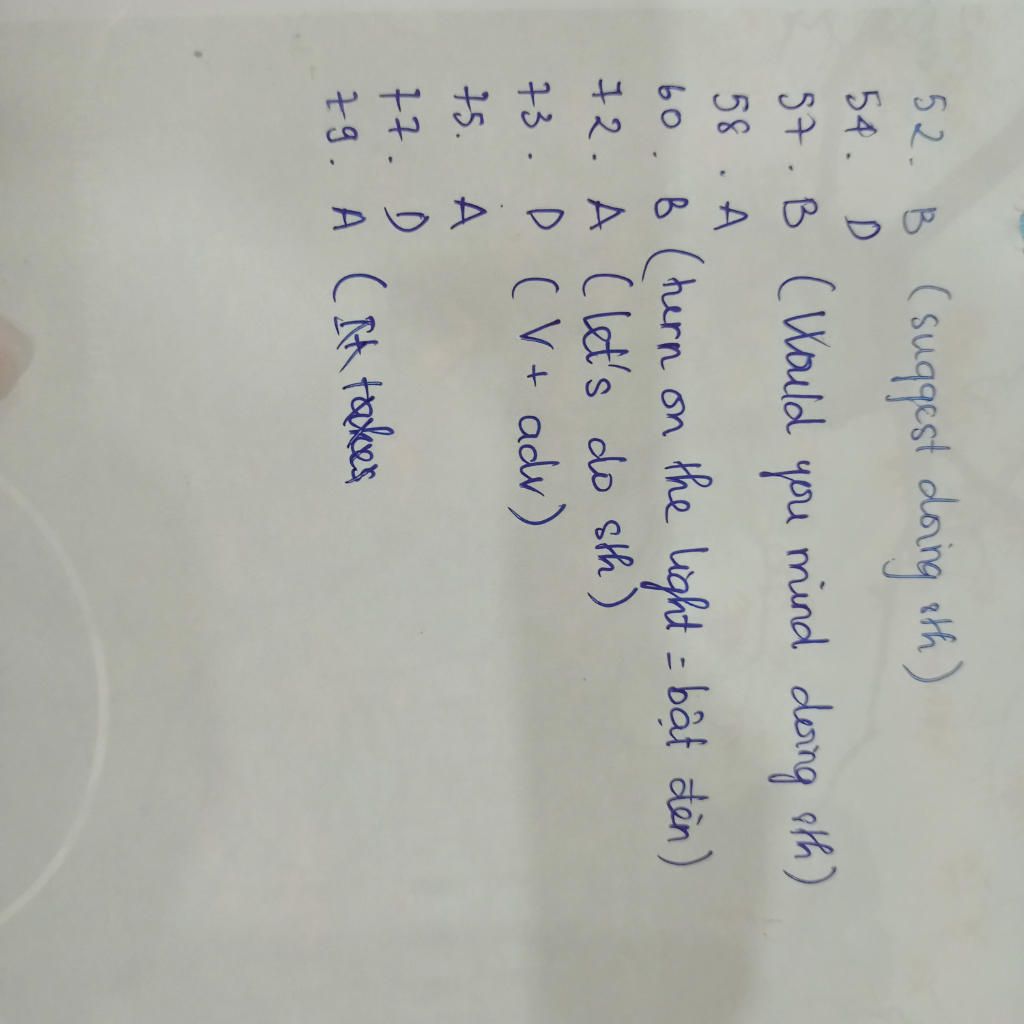 52. B (suggest doing sth)
54. D
57. B (Would you mind doing sth)
58. A
60. B (turn on the light = bật đèn)
72. A (let's do sth)
73. D (V + adv)
75. A
77. D
79. A (It takes